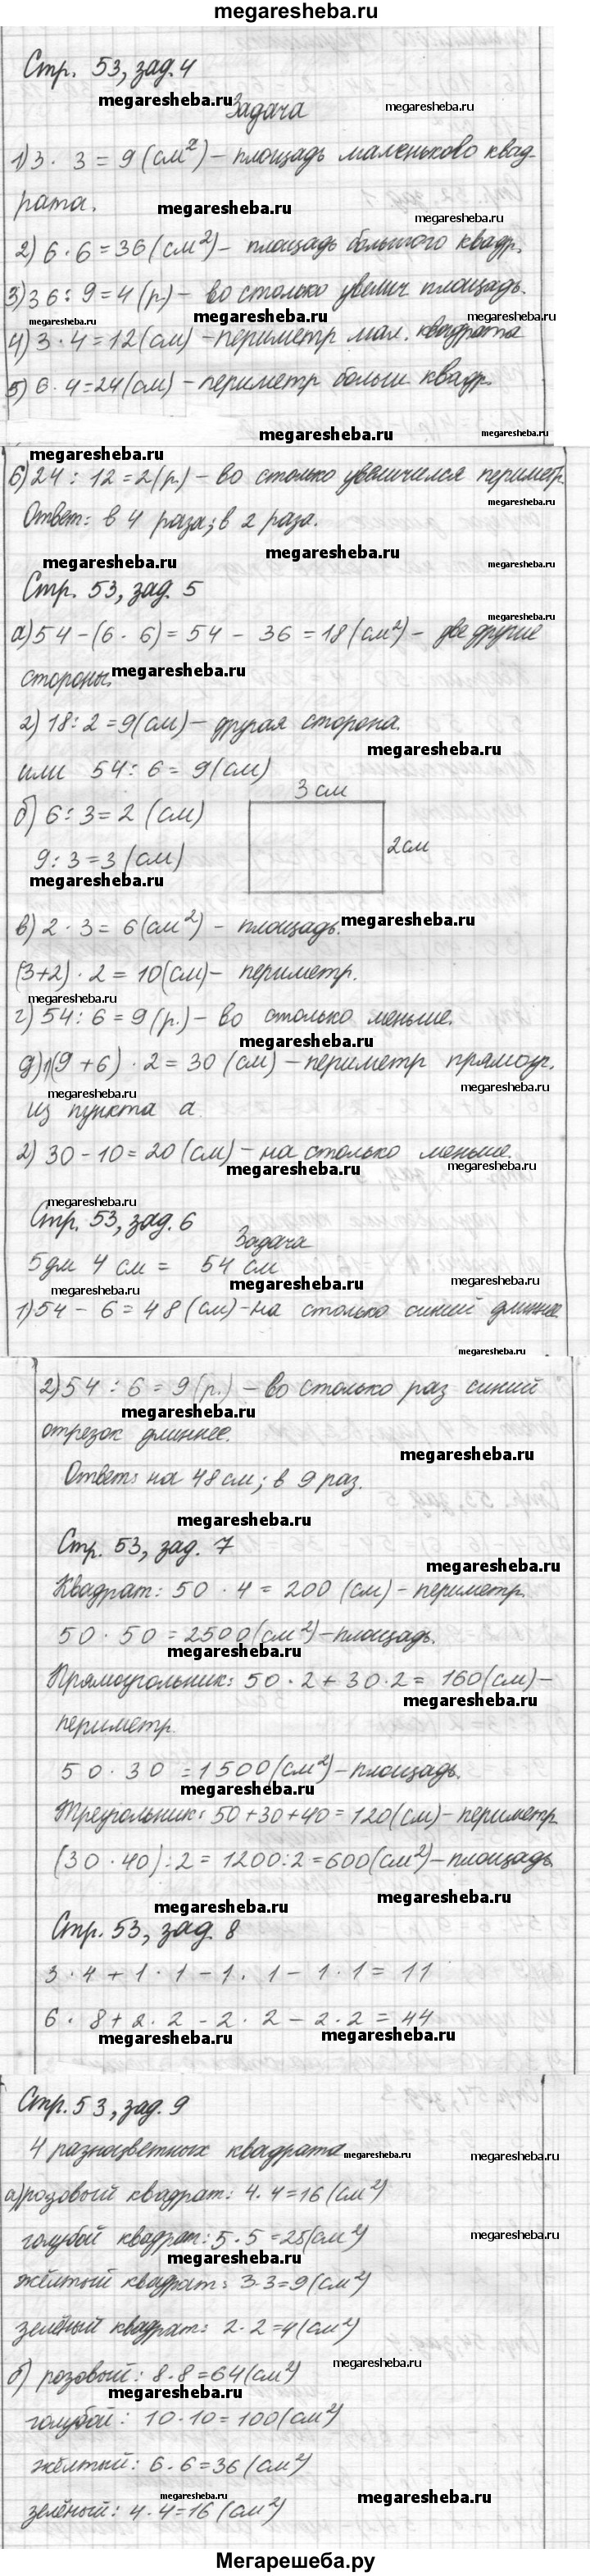 megaresheba.ru
Стр. 53, зад. 4
Задача
1) 3 · 3 = 9 (см²) – площадь маленьково квад-
рата.
2) 6 · 6 = 36 (см²) – площадь большого квадр.
3) 36 : 9 = 4 (р.) – во столько увелич площадь.
4) 3 · 4 = 12 (см) – периметр мал. квадрата
5) 6 · 4 = 24 (см) – периметр больш квадр.
6) 24 : 12 = 2 (р.) – во столько увеличился периметр
Ответ: в 4 раза; в 2 раза.
Стр. 53, зад. 5
а) 54 – (6 · 6) = 54 – 36 = 18 (см²) – две другие
стороны.
2) 18 : 2 = 9 (см) – другая сторона.
или 54 : 6 = 9 (см)
б) 6 : 3 = 2 (см)
3 см
9 : 3 = 3 (см)
2 см
в) 2 · 3 = 6 (см²) – площадь.
(3+2) · 2 = 10 (см) – периметр.
г) 54 : 6 = 9 (р.) – во столько меньше.
д) 1) (9 + 6) · 2 = 30 (см) – периметр прямоуг.
из пункта а
2) 30 – 10 = 20 (см) – на столько меньше.
Стр. 53, зад. 6
Задача
5 дм 4 см = 54 см
1) 54 – 6 = 48 (см) – на столько синий длиннее
2) 54 : 6 = 9 (р.) – во столько раз синий
отрезок длиннее.
Ответ: на 48 см; в 9 раз.
Стр. 53, зад. 7
Квадрат: 50 · 4 = 200 (см) – периметр
50 · 50 = 2500 (см²) – площадь.
Прямоугольник: 50 · 2 + 30 · 2 = 160 (см) –
периметр
50 · 30 = 1500 (см²) – площадь.
Треугольник: 50 + 30 + 40 = 120 (см) – периметр
(30 · 40) : 2 = 1200 : 2 = 600 (см²) – площадь
Стр. 53, зад. 8
3 · 4 + 1 · 1 – 1 · 1 – 1 · 1 = 11
6 · 8 + 2 · 2 – 2 · 2 – 2 · 2 = 44
Стр. 53, зад. 9
4 разноцветных квадрата
а) розовый квадрат: 4 · 4 = 16 (см²)
голубой квадрат: 5 · 5 = 25 (см²)
жёлтый квадрат: 3 · 3 = 9 (см²)
зелёный квадрат: 2 · 2 = 4 (см²)
б) розовый: 8 · 8 = 64 (см²)
голубой: 10 · 10 = 100 (см²)
жёлтый: 6 · 6 = 36 (см²)
зелёный: 4 · 4 = 16 (см²)
Мегарешеба.ру